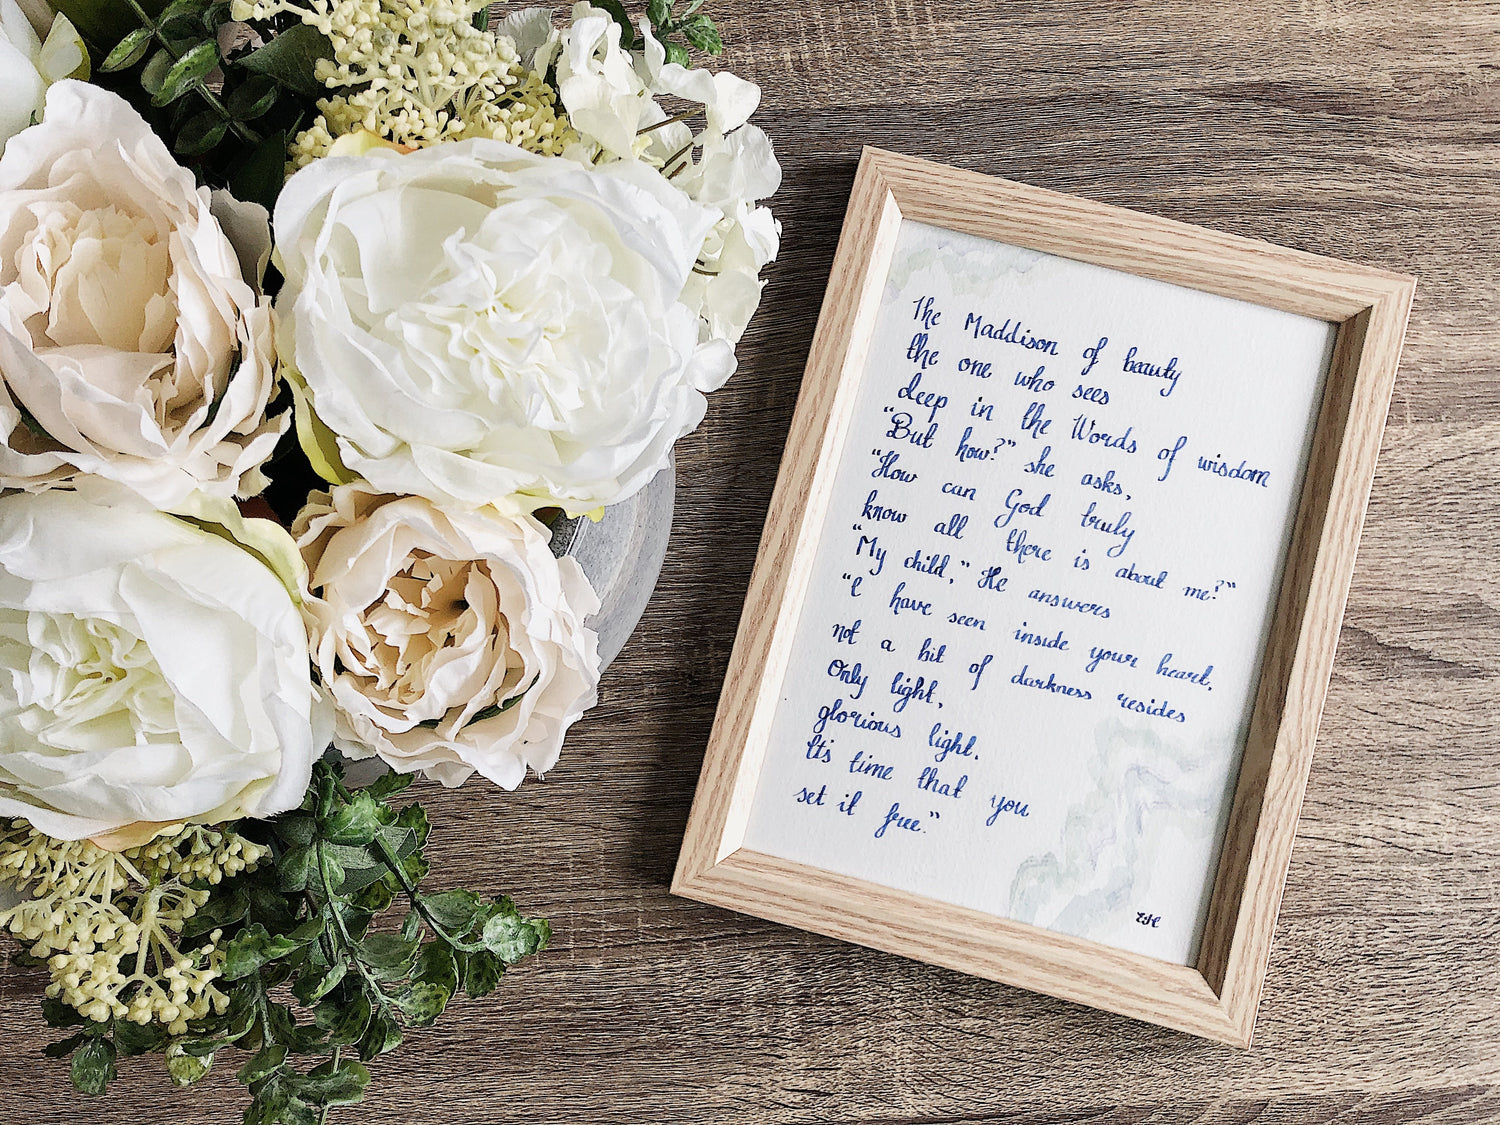 The Maddison of beauty
the one who sees
deep in the Words of wisdom
"But how?" she asks,
"How can God truly
know all there is about me?"
"My child," He answers
"I have seen inside your heart,
not a bit of darkness resides
Only light,
glorious light.
It's time that you
set it free."